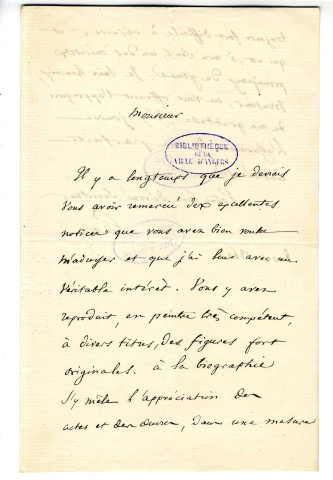 Monsieur
BIBLIOTHÈQUE
DE LA
VILLE D'ANGERS
Il y a longtemps que je devrais
vous avoir remercié des excellentes
notices que vous avez bien voulu
m'adresser et que j'ai lues avec un
véritable intérêt. Vous y avez
reproduit, en peintre très compétent,
à divers titres, des figures fort
originales. à la biographie
s'y mêle l'appréciation des
actes et des œuvres, dans une mesure